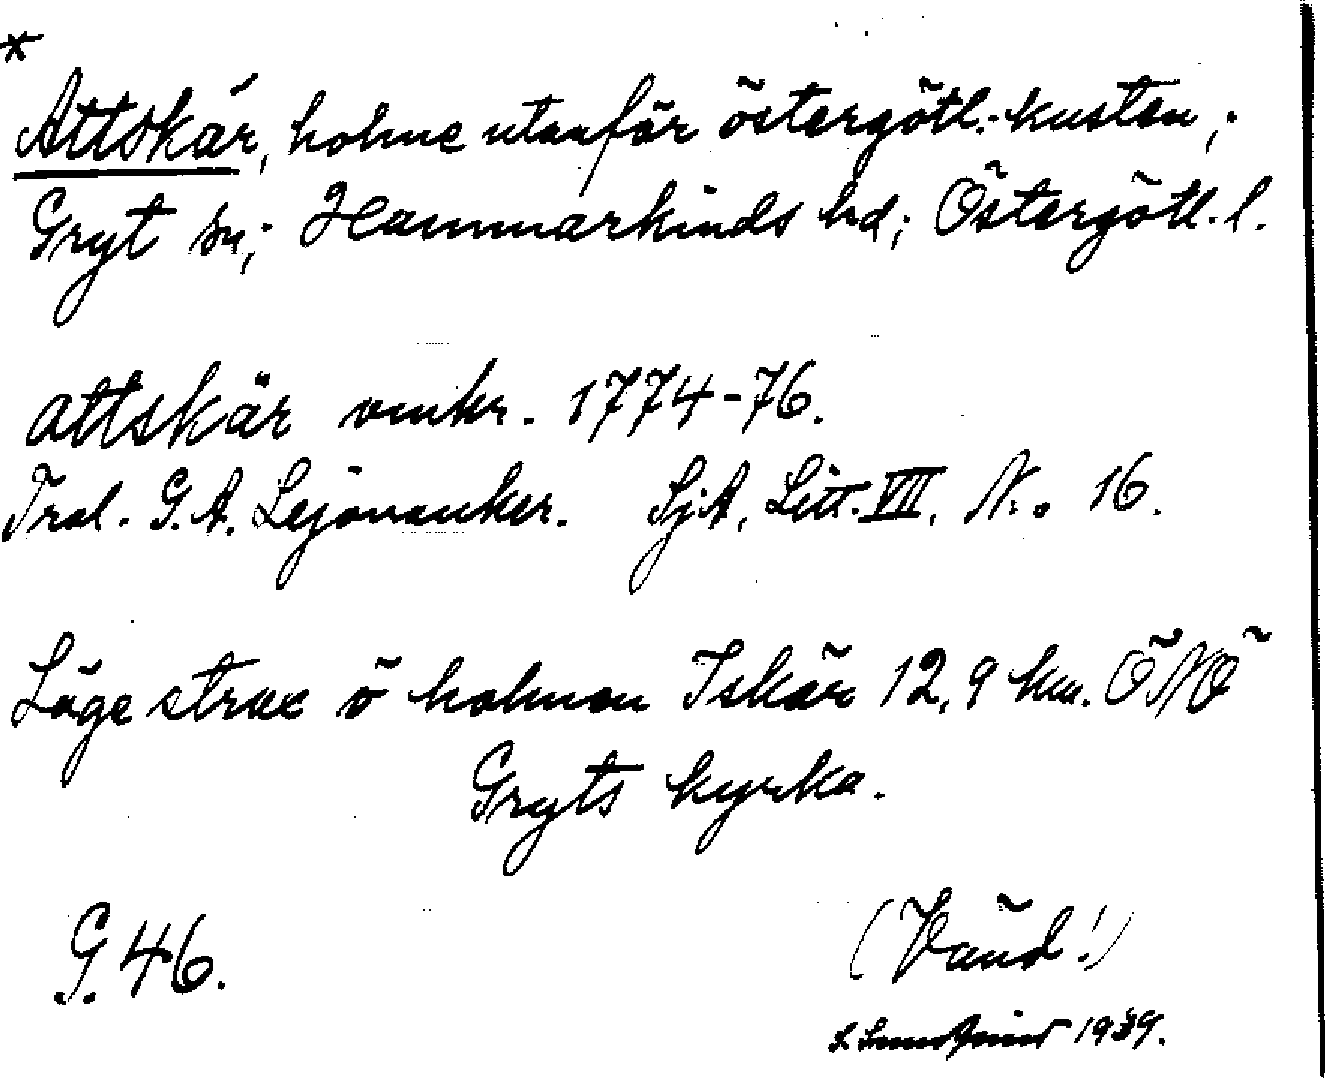 *
Attskär, holme utanför östergötl. kusten;
Gryt sn; Hammarkinds hd; Östergötl. l.
attskär omkr. 1774-76.
Tral. G. A. Lejonanker. SjA, Litt. VII, No 16.
Läge strax ö holmen Iskär 12,9 km. ÖNÖ
Gryts kyrka.
G. 46.
(Vänd!)
1939.